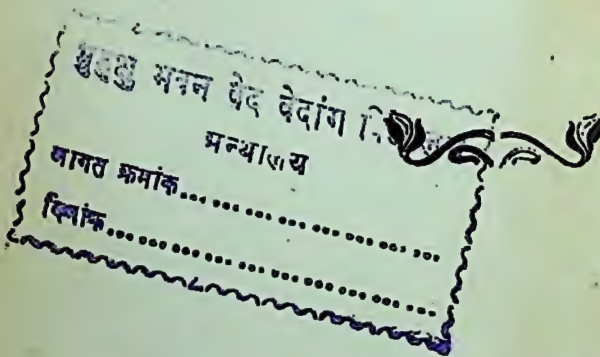 मुमुक्षु भवन वेद वेदांग
ग्रन्थालय
आगत क्रमांक........................
दिनांक........................